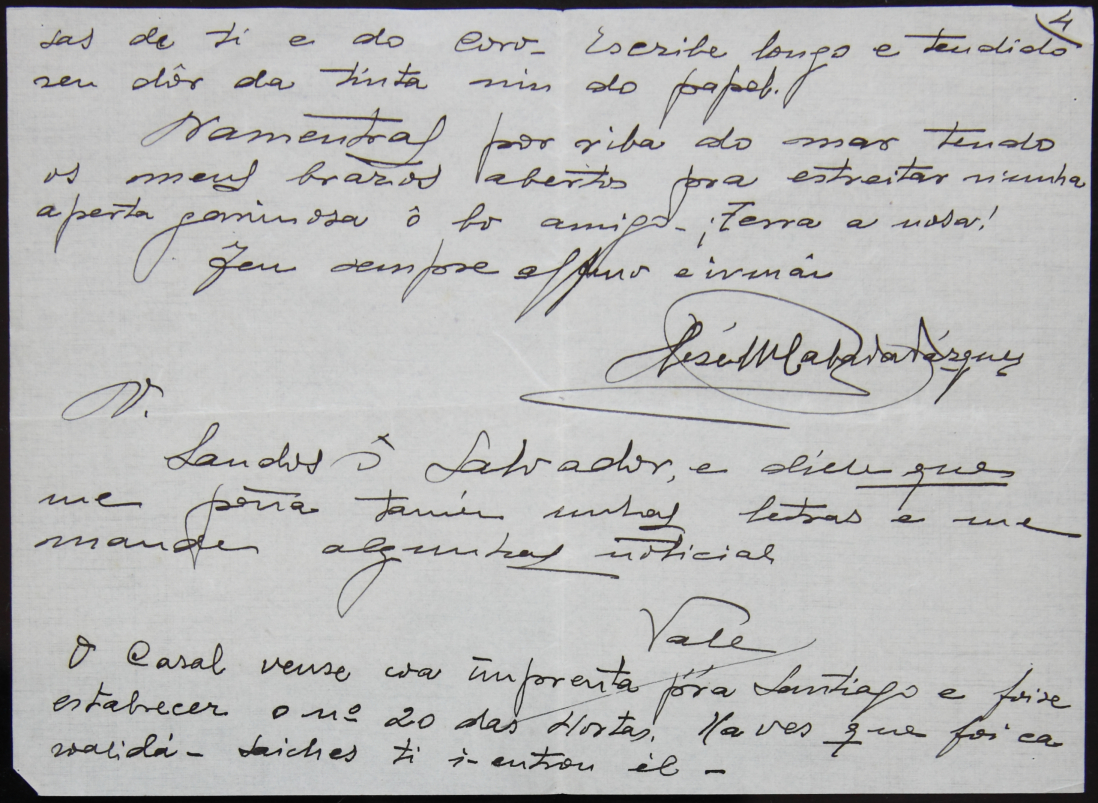 4
sas de ti e do Coro- Escribe longo e tendido
sen dôr da tinta nin do papel.
Namentras por riba do mar tendo
os meus brazos abertos pra estreitar nunha
aperta garimosa ô bo amigo- ¡Terra a nosa!
Teu sempre afmo e irmán
Vázquez
Saudos ô Salvador, e dille que
me poña tamén unhas letras e me
mande algunhas noticias
Vale
O Casal vense coa imprenta pra Santiago e foise
establecer o nº 20 das Hortas. Xa ves que foi ca
- Saiches ti i-entrou él -